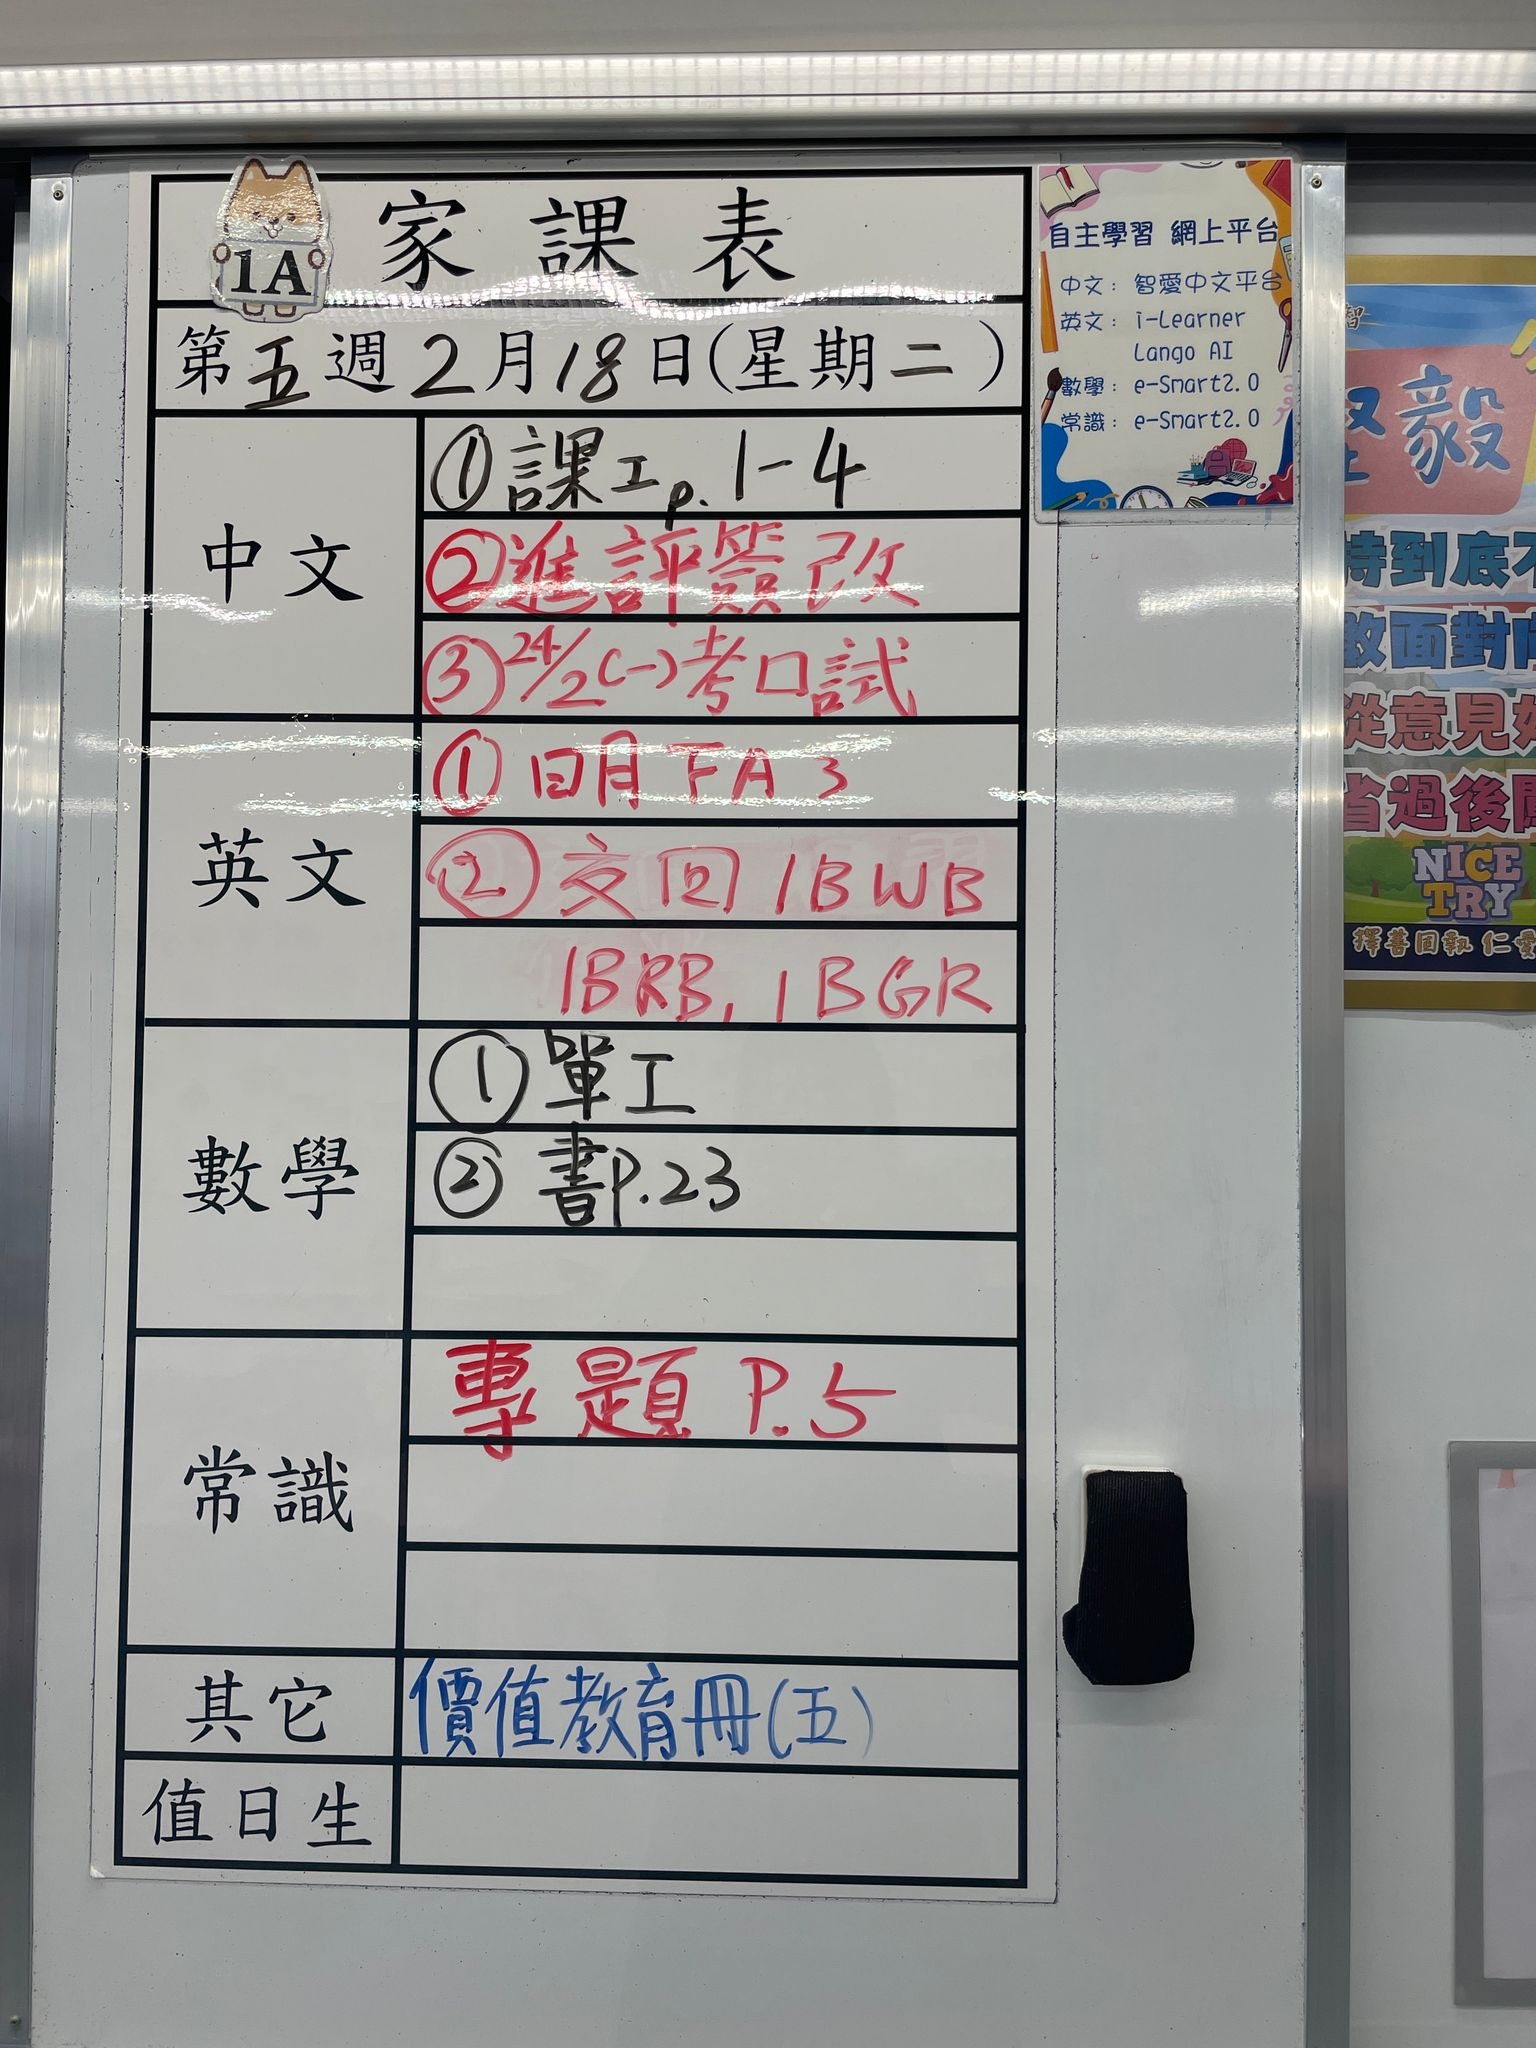 1A
家課表
第五週2月18日(星期二)
中文
①課工p.1-4
②進評簽改
③24/2(一)考口試
英文
①明FA3
②交回1BWB
1BRB, 1BGR
數學
①單工
②書P.23
常識
專題P.5
其它
價值教育冊(五)
值日生
自主學習 網上平台
中文：智愛中文平台
英文：i-Learner
Lango AI
數學：e-Smart2.0
常識：e-Smart2.0
毅
持到底不
教面對
從意見
省過後
NICE
TRY
擇善固執 仁愛